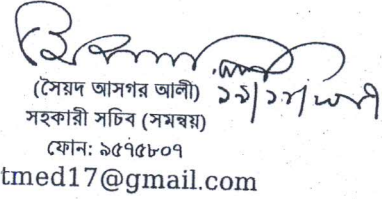 (সৈয়দ আসগর আলী)
সহকারী সচিব (সমন্বয়)
ফোন: ৯৫৭৫৮০৭
tmed17@gmail.com